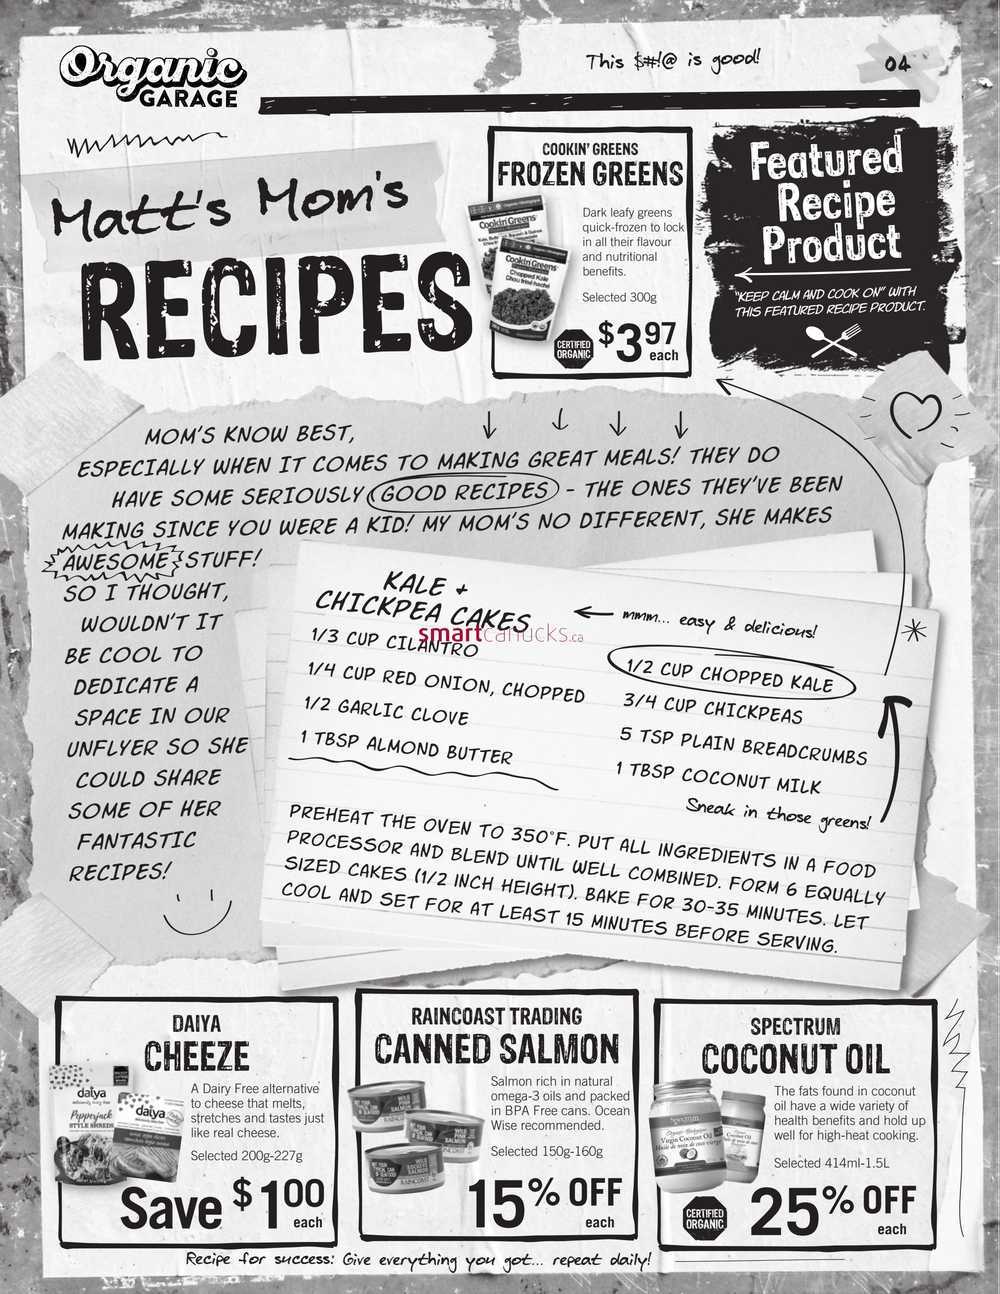 Organic
GARAGE
This $#!@ is good!
04
Matt's Mom's
RECIPES
COOKIN' GREENS
FROZEN GREENS
Cookin Greens
Cookin Greens
Chopped Kale
Chou frisé haché
Dark leafy greens
quick-frozen to lock
in all their flavour
and nutritional
benefits.
Selected 300g
CERTIFIED
ORGANIC
$3.97
each
Featured
Recipe
Product
"KEEP CALM AND COOK ON" WITH
THIS FEATURED RECIPE PRODUCT.
MOM'S KNOW BEST,
ESPECIALLY WHEN IT COMES TO MAKING GREAT MEALS! THEY DO
HAVE SOME SERIOUSLY GOOD RECIPES - THE ONES THEY'VE BEEN
MAKING SINCE YOU WERE A KID! MY MOM'S NO DIFFERENT, SHE MAKES
AWESOME STUFF!
SO I THOUGHT,
WOULDN'T IT
BE COOL TO
DEDICATE A
SPACE IN OUR
UNFLYER SO SHE
COULD SHARE
SOME OF HER
FANTASTIC
RECIPES!
KALE +
CHICKPEA CAKES
mmm... easy & delicious!
smartcanucks.ca
1/3 CUP CILANTRO
1/4 CUP RED ONION, CHOPPED
1/2 GARLIC CLOVE
1 TBSP ALMOND BUTTER
1/2 CUP CHOPPED KALE
3/4 CUP CHICKPEAS
5 TSP PLAIN BREADCRUMBS
1 TBSP COCONUT MILK
Sneak in those greens!
PREHEAT THE OVEN TO 350°F. PUT ALL INGREDIENTS IN A FOOD
PROCESSOR AND BLEND UNTIL WELL COMBINED. FORM 6 EQUALLY
SIZED CAKES (1/2 INCH HEIGHT). BAKE FOR 30-35 MINUTES. LET
COOL AND SET FOR AT LEAST 15 MINUTES BEFORE SERVING.
DAIYA
CHEEZE
daiya
Pepperjack
STYLE SHREDS
daiya
A Dairy Free alternative
to cheese that melts,
stretches and tastes just
like real cheese.
Selected 200g-227g
Save $1.00
each
RAINCOAST TRADING
CANNED SALMON
WILD
SALMON
WILD
PINK
SALMON
WILD
SOCKEYE
SALMON
RAINCOAST
Salmon rich in natural
omega-3 oils and packed
in BPA Free cans. Ocean
Wise recommended.
Selected 150g-160g
15% OFF
each
SPECTRUM
COCONUT OIL
Virgin Coconut Oil
Coconut Oil
The fats found in coconut
oil have a wide variety of
health benefits and hold up
well for high-heat cooking.
Selected 414ml-1.5L
CERTIFIED
ORGANIC
25% OFF
each
Recipe for success: Give everything you got... repeat daily!